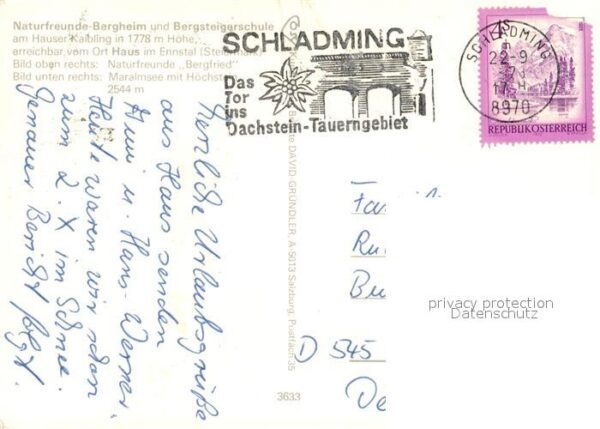 Naturfreunde-Bergheim und Bergsteigerschule
am Hauser Kaibling in 1778 m Höhe,
erreichbar vom Ort Haus im Ennstal (Steiermark)
Bild oben rechts: Naturfreunde „Bergfried"
Bild unten rechts: Maralmsee mit Höchstein
2544 m
SCHLADMING
Das
Tor
ins
Dachstein-Tauerngebiet
SCHLADMING
22-9
17
8970
REPUBLIK ÖSTERREICH
Herzliche Urlaubsgrüße
aus Haus senden
Anni u. Hans-Werner.
Heute waren wir schon
zum 2. X im Schnee.
Genauer Bericht folgt.
DAVID GRÜNDLER, A-5013 Salzburg, Postfach 35
3633
Fa
Ru
Bu
D 545
De
privacy protection
Datenschutz